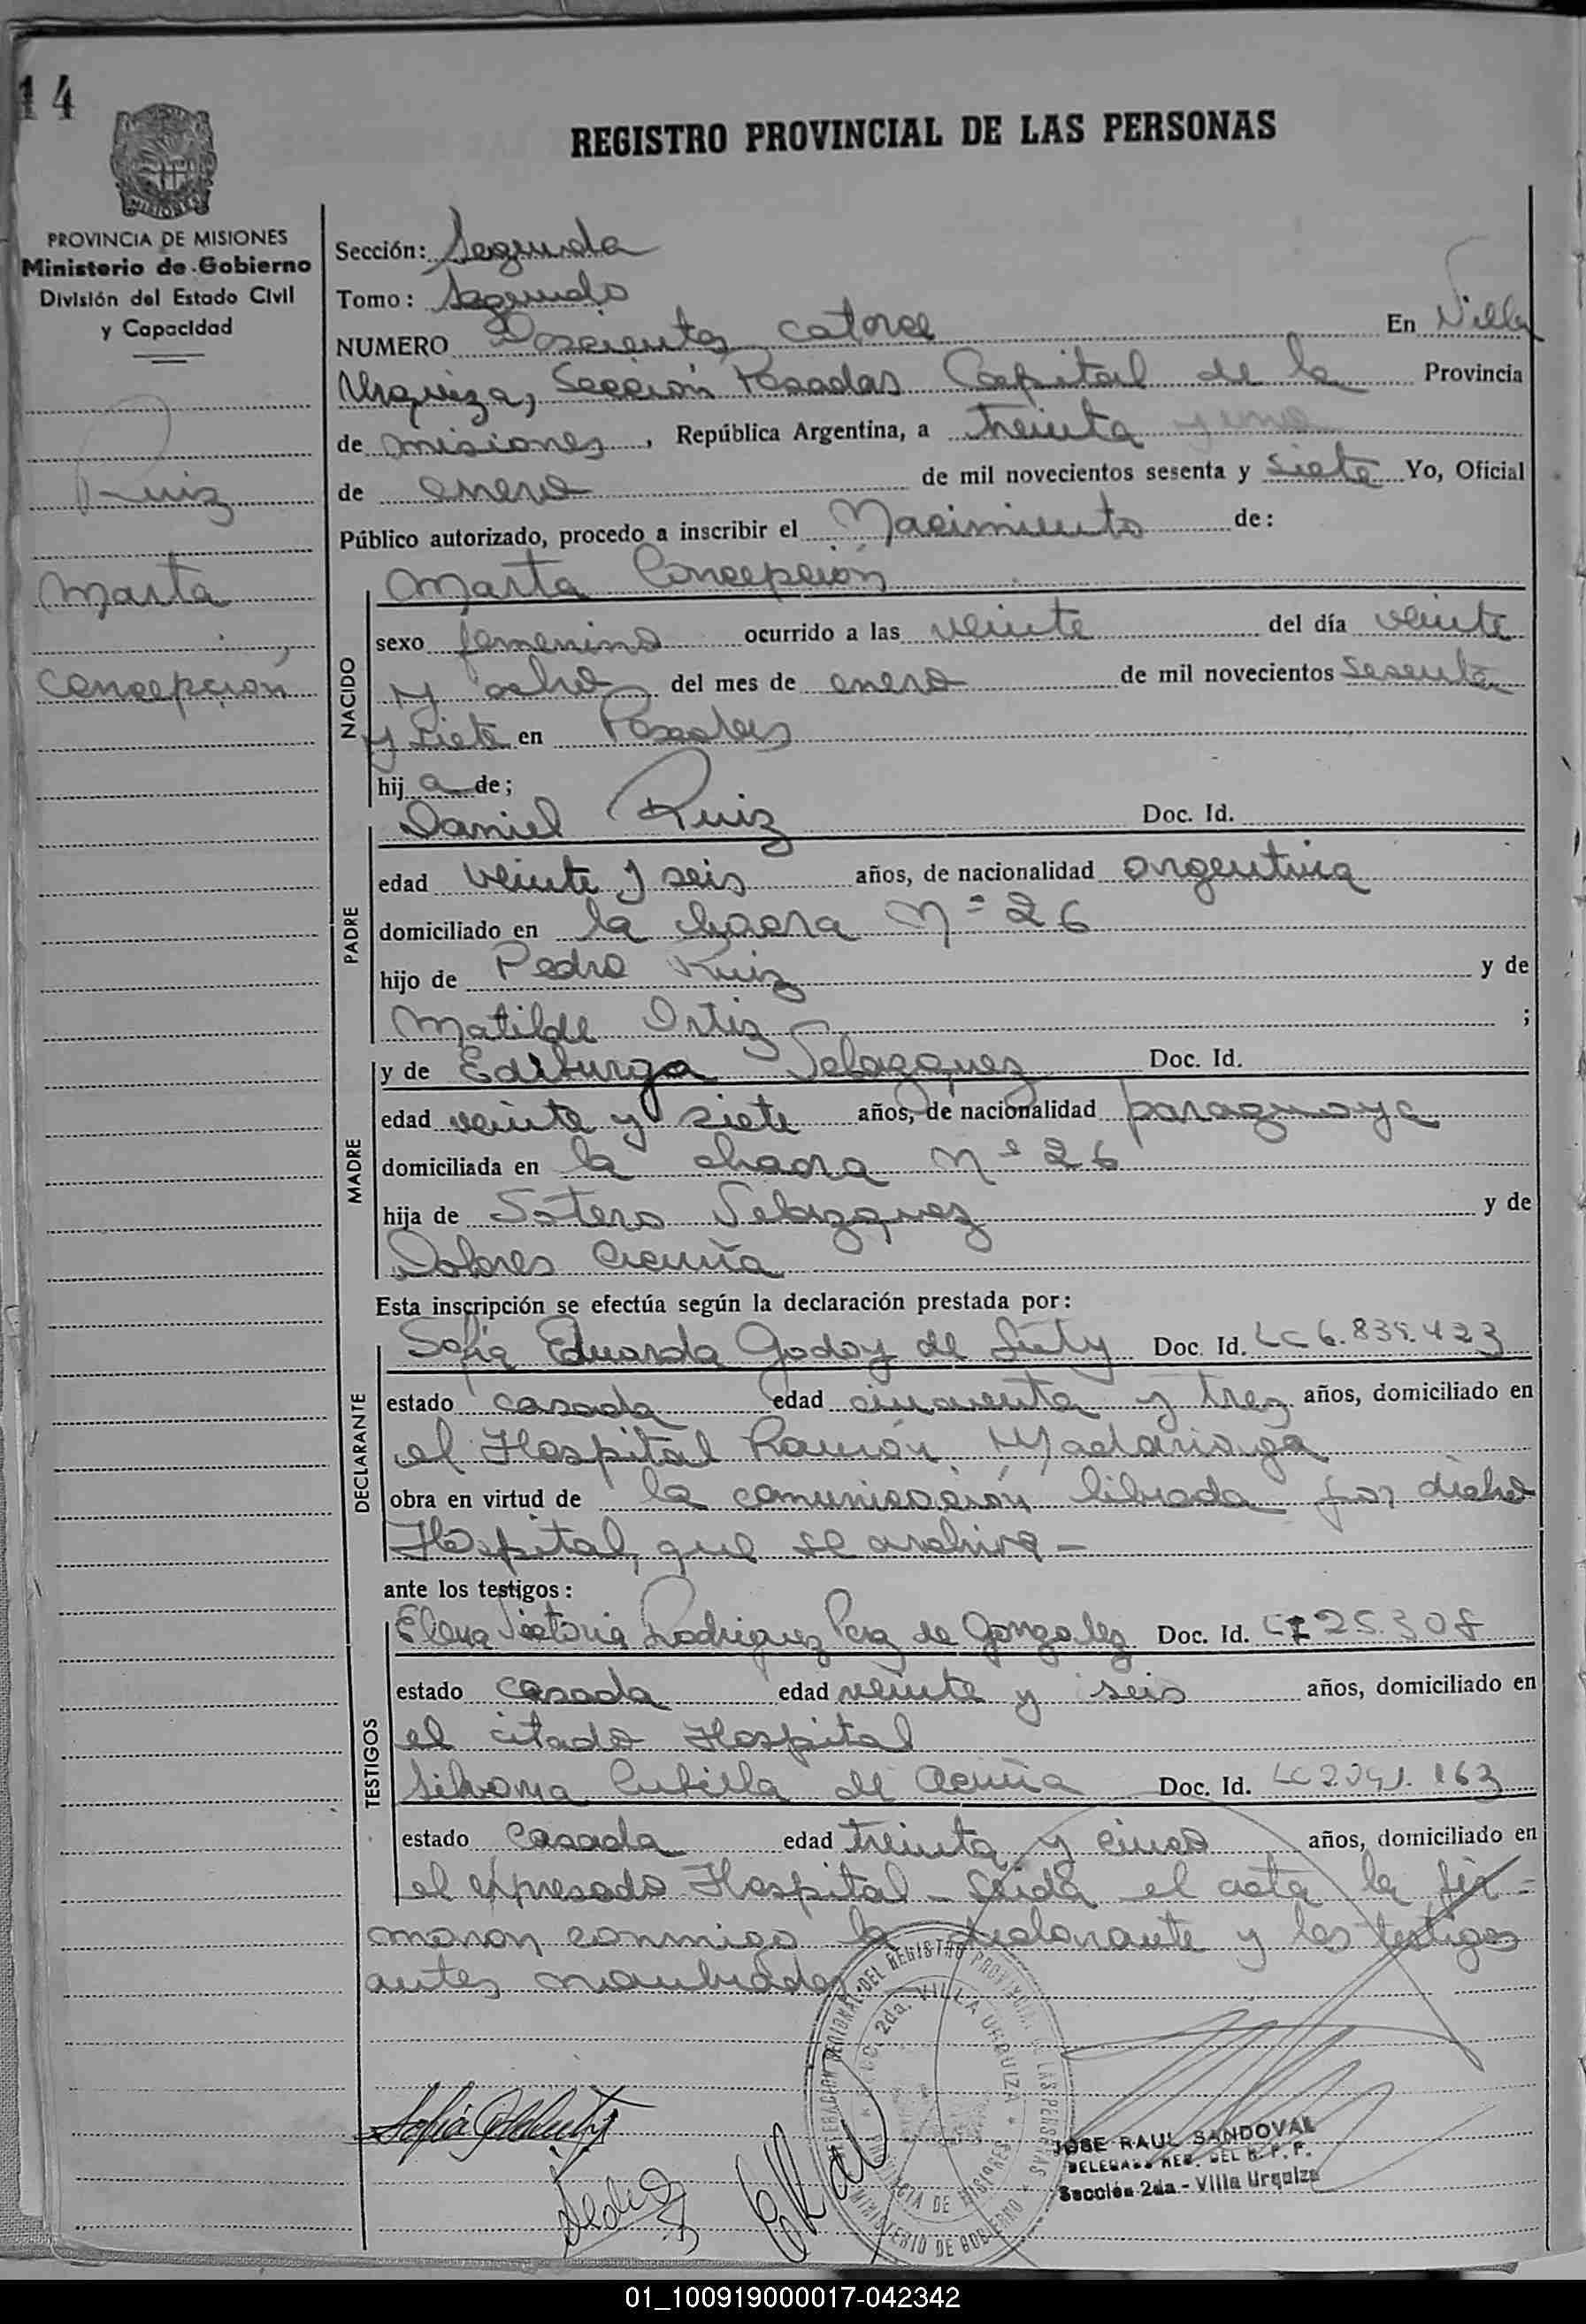 14
REGISTRO PROVINCIAL DE LAS PERSONAS
MISIONES
PROVINCIA DE MISIONES
Ministerio de Gobierno
División del Estado Civil
y Capacidad
Ruiz
Marta
Concepción
Sección: Segunda
Tomo: Segundo
NUMERO Doscientos catorce En Villa
Urquiza, Sección Posadas Capital de la Provincia
de misiones, República Argentina, a treinta y uno
de enero de mil novecientos sesenta y siete Yo, Oficial
Público autorizado, procedo a inscribir el Nacimiento de:
Marta Concepción
NACIDO
sexo femenino ocurrido a las veinte del día veinte
y ocho del mes de enero de mil novecientos sesenta
y siete en Posadas
hij a de;
PADRE
Daniel Ruiz Doc. Id.
edad veinte y seis años, de nacionalidad argentina
domiciliado en la chacra Nº 26
hijo de Pedro Ruiz y de
Matilde Ortiz ;
MADRE
y de Ediburga Velazquez Doc. Id.
edad veinte y siete años, de nacionalidad paraguaya
domiciliada en la chacra Nº 26
hija de Sotero Velazquez y de
Dolores Acuña
Esta inscripción se efectúa según la declaración prestada por:
DECLARANTE
Sofia Eduarda Godoy de Doc. Id. LC 6.839.423
estado casada edad cincuenta y tres años, domiciliado en
el Hospital Ramón Madariaga
obra en virtud de la comunicación librada por dicho
Hospital, que se archiva -
ante los testigos:
TESTIGOS
Elena Victoria Rodriguez de Gonzalez Doc. Id. 25.308
estado casada edad veinte y seis años, domiciliado en
el citado Hospital
Silvana Cubilla de Acuña Doc. Id. LC
estado casada edad treinta y cinco años, domiciliado en
el expresado Hospital - Leida el acta la fir=
maron conmigo la declarante y los testigos
antes nombrados
DELEGACION REGIONAL DEL REGISTRO PROVINCIAL DE LAS PERSONAS
SECC. 2da. VILLA URQUIZA
PROVINCIA DE MISIONES
MINISTERIO DE GOBIERNO
JOSE RAUL SANDOVAL
DELEGADO REG. DEL R. P. P.
Sección 2da - Villa Urquiza
01_100919000017-042342